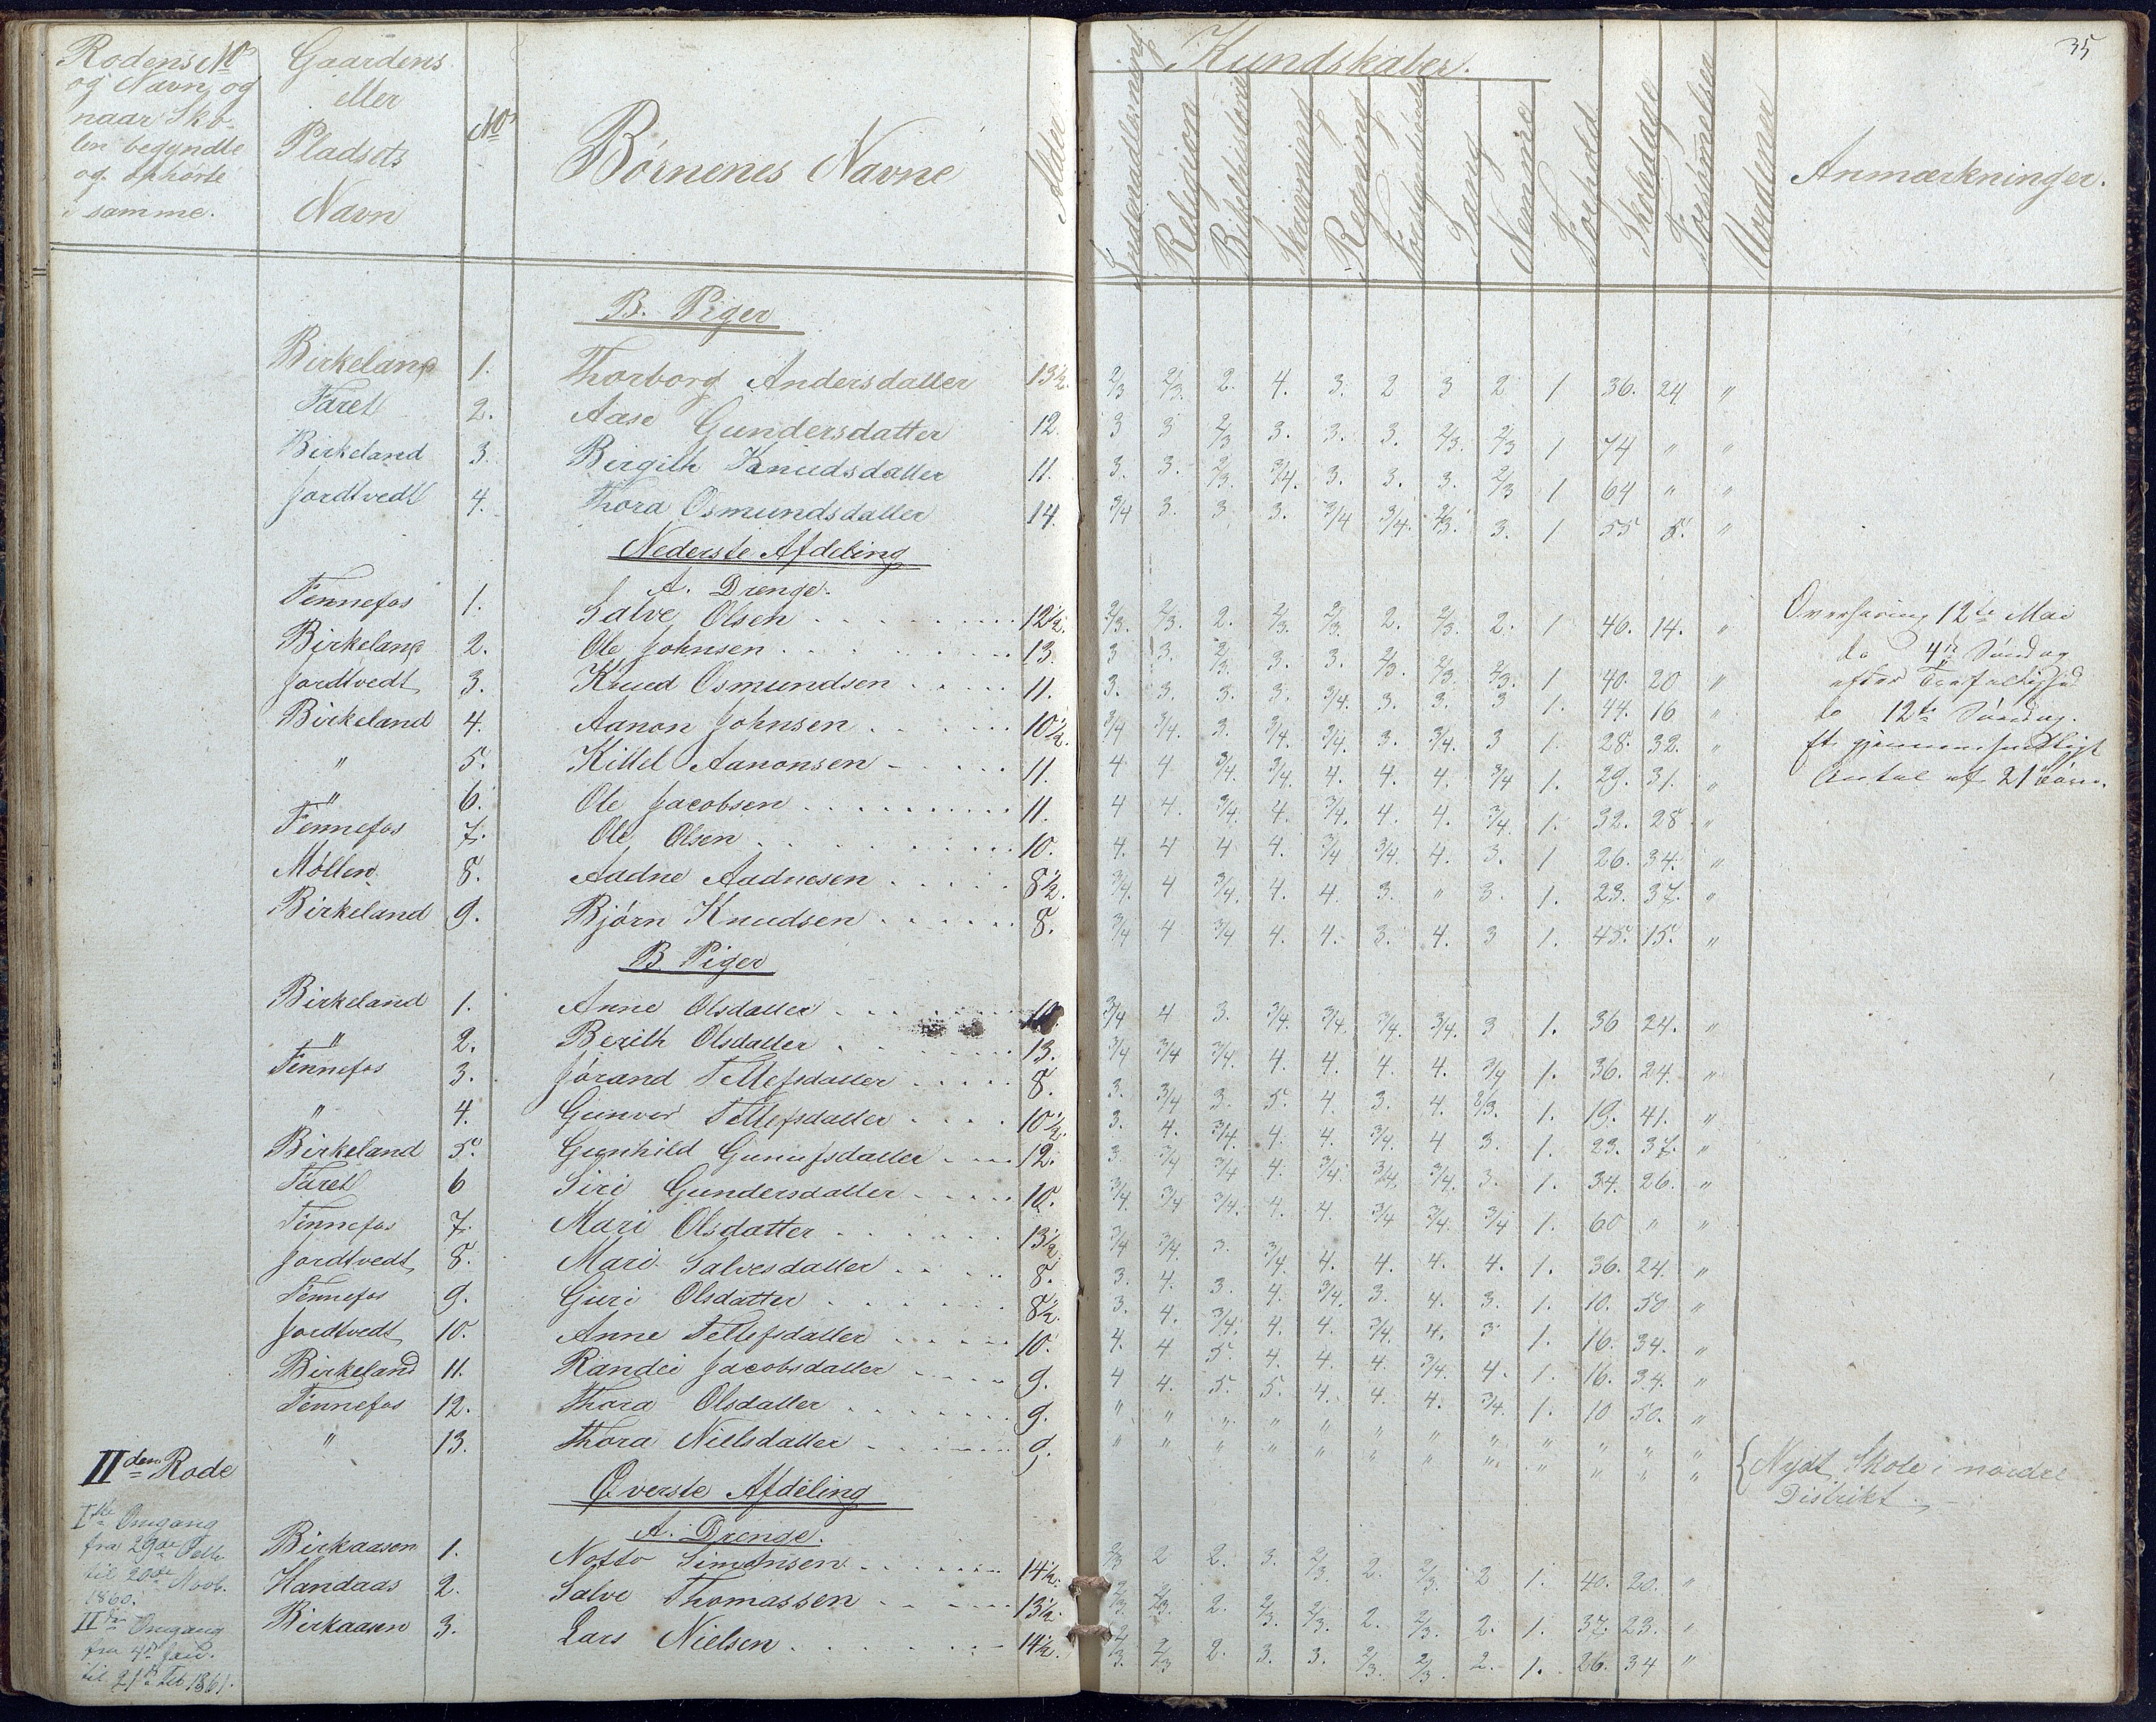 35
Rodens No og Navn, og naar Skolen begyndte og ophörte i samme.
Gaardens eller Pladsets Navn
No
Børnenes Navne
Alder
Kundskaber.
Indenadlæsning
Religion
Bibelhistorie
Skrivning
Regning
Sang
Nemme
Forhold
Skoledage
Forsømmelser
Uordener
Anmærkninger.
B. Piger
Birkeland 1. Thorborg Andersdatter 13½. 2/3 2/3. 2. 4. 3. 2 3 2 1 36. 24 "
Faret 2. Aase Gundersdatter 12. 3 3 2/3 3. 3. 3. 2/3. 2/3 1 74 " "
Birkeland 3. Birgith Knudsdatter 11. 3. 3. 2/3. 3/4. 3. 3. 3. 2/3 1 64 " "
Jordtvedt 4. Thora Osmundsdatter 14. 3/4 3. 3. 3. 3/4 3/4. 2/3. 3. 1 55 5. "
Nederste Afdeling
A. Drenge.
Tennefos 1. Salve Olsen 12½. 2/3. 2/3. 2. 2/3. 2/3. 2. 2/3. 2. 1 46. 14. "
Birkeland 2. Ole Johnsen 13. 3 3. 2/3. 3. 3. 2/3. 2/3. 2/3. 1 40. 20 "
Jordtvedt 3. Knud Osmundsen 11. 3. 3. 3. 3. 3/4. 3. 3. 3 1. 44. 16 "
Birkeland 4. Aanon Johnsen 10½. 3/4 3/4. 3. 3/4. 3/4. 3. 3/4. 3 1. 28. 32. "
" 5. Kittel Aanonsen 11. 4 4 3/4. 3/4. 4. 4. 4. 3/4 1. 29. 31. "
" 6. Ole Jacobsen 11. 4 4. 3/4. 4. 3/4. 4. 4. 3/4. 1. 32. 28 "
Tennefos 7. Ole Olsen 10. 4. 4 4 4. 3/4 3/4. 4. 3. 1 26. 34. "
Möllen 8. Aadne Aadnesen 8½. 3/4. 4 3/4. 4. 4. 3. " 3. 1. 23. 37. "
Birkeland 9. Bjørn Knudsen 8. 3/4 4 3/4 4. 4. 3. 4. 3 1. 45. 15. "
Overhøring 12te Mai
do 4de Søndag
efter Trefoldighed
do 12te Søndag.
Antal af 21 Børn.
B. Piger
Birkeland 1. Anne Olsdatter 3/4 4 3. 3/4. 3/4. 3/4. 3/4. 3 1. 36 24. "
" 2. Berith Olsdatter 13. 3/4 3/4 3/4. 4. 4. 4. 4. 3/4 1. 36. 24. "
Tennefos 3. Jórand Tellefsdatter 8. 3. 3/4 3. 5. 4. 3. 4. 1. 19. 41. "
" 4. Gunvor Tellefsdatter 10½. 3. 4. 3/4. 4. 4. 3/4. 4 3. 1. 23. 37. "
Birkeland 5. Gunhild Gunufsdatter 12. 3. 3/4 3/4 4. 3/4. 3/4. 3/4. 3. 1. 34. 26. "
Faret 6 Siri Gundersdatter 10. 3/4. 3/4 3/4. 4. 4. 3/4 3/4. 3/4 1. 60 " "
Tennefos 7. Mari Olsdatter 13½. 3/4 3/4. 3. 3/4 4. 4. 4. 4. 1. 36. 24. "
Jordtvedt 8. Mari Salvesdatter 8. 3. 4. 3. 4. 3/4. 3. 4. 3. 1. 10. 50 "
Tennefos 9. Guri Olsdatter 8½. 3. 4. 3/4. 4. 4. 3/4. 4. 3 1. 16. 34. "
Jordtvedt 10. Anne Tellefsdatter 10. 4. 4 5. 4. 4. 4. 3/4. 4. 1. 16. 34. "
Birkeland 11. Randei Jacobsdatter 9. 4 4. 5. 5. 4. 4. 4. 3/4. 1. 10 50. "
Tennefos 12. Thora Olsdatter 9. " " " " " " " " " " " "
" 13. Thora Nielsdatter 9. " " " " " " " " " " " "
{Nydt Skole i nordre
Distrikt.
IIden Rode
Överste Afdeling
A. Drenge.
Iste Omgang
fra 29de
til 20de Novb.
1860.
IIden Omgang
fra 4de Jan.
til 21de Feb 1861.
Birkaasen 1. Notto Simonsen 14½. 2/3 2 2. 3. 2/3. 2. 2/3. 2 1. 40. 20. "
Handaas 2. Salve Thomassen 13½. 2/3. 2/3. 2. 2/3 2/3. 2. 2/3. 2. 1. 37. 23. "
Birkaasen 3. Lars Nielsen 14½. 2/3. 2/3 2. 3. 3. 2/3. 2/3. 2. 1. 26. 34 "